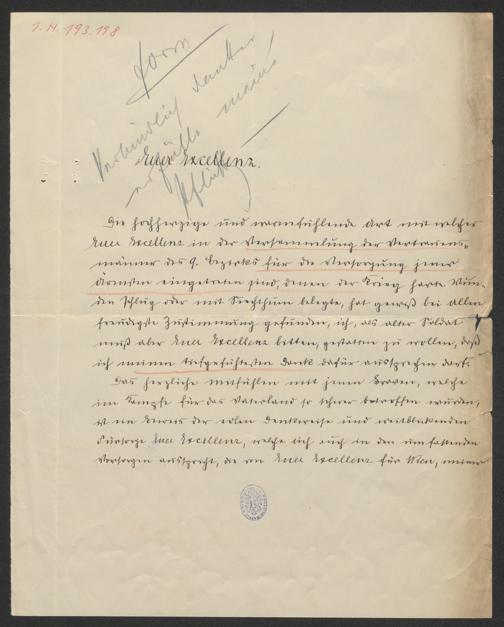 I. N. 193.198
Form
Verbindlich danken
erfüllte meine
Pflicht
Euer Excellenz.
Die hochherzige und warmfühlende Art mit welcher
Euer Excellenz in der Versammlung der Vertrauens-
männer des 9. Bezirks für die Versorgung jener
Ärmsten eingetreten sind, denen der Krieg harte Wun-
den schlug oder mit Siechthum belegte, hat gewiß bei Allen
freudigste Zustimmung gefunden, ich, als alter Soldat
muß aber Euer Excellenz bitten, gestatten zu wollen, daß
ich meinen tiefgefühltesten Dank dafür aussprechen darf.
Das herzliche Mitfühlen mit jenen Braven, welche
im Kampfe für das Vaterland so schwer betroffen wurden,
ist ein Beweis der edlen Denkweise und weitblickenden
Fürsorge Euer Excellenz, welche sich auch in den umfassenden
Vorsorgen ausspricht, die von Euer Excellenz für Wien, meine